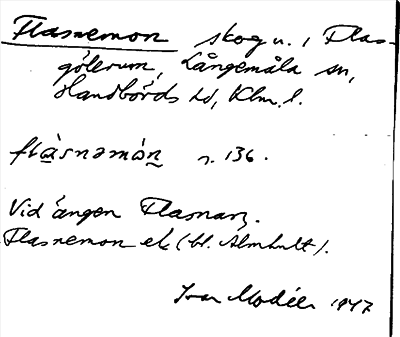 Flasnemon skog n. i Flas-
gölerum, Långemåla sn,
Handbörds hd, Klm. l.
flàsnəmón s. 136.
Vid ängen Flasnarz.
Flasnemon ek (bl. Älmhult).
Ivar Modéer 1947